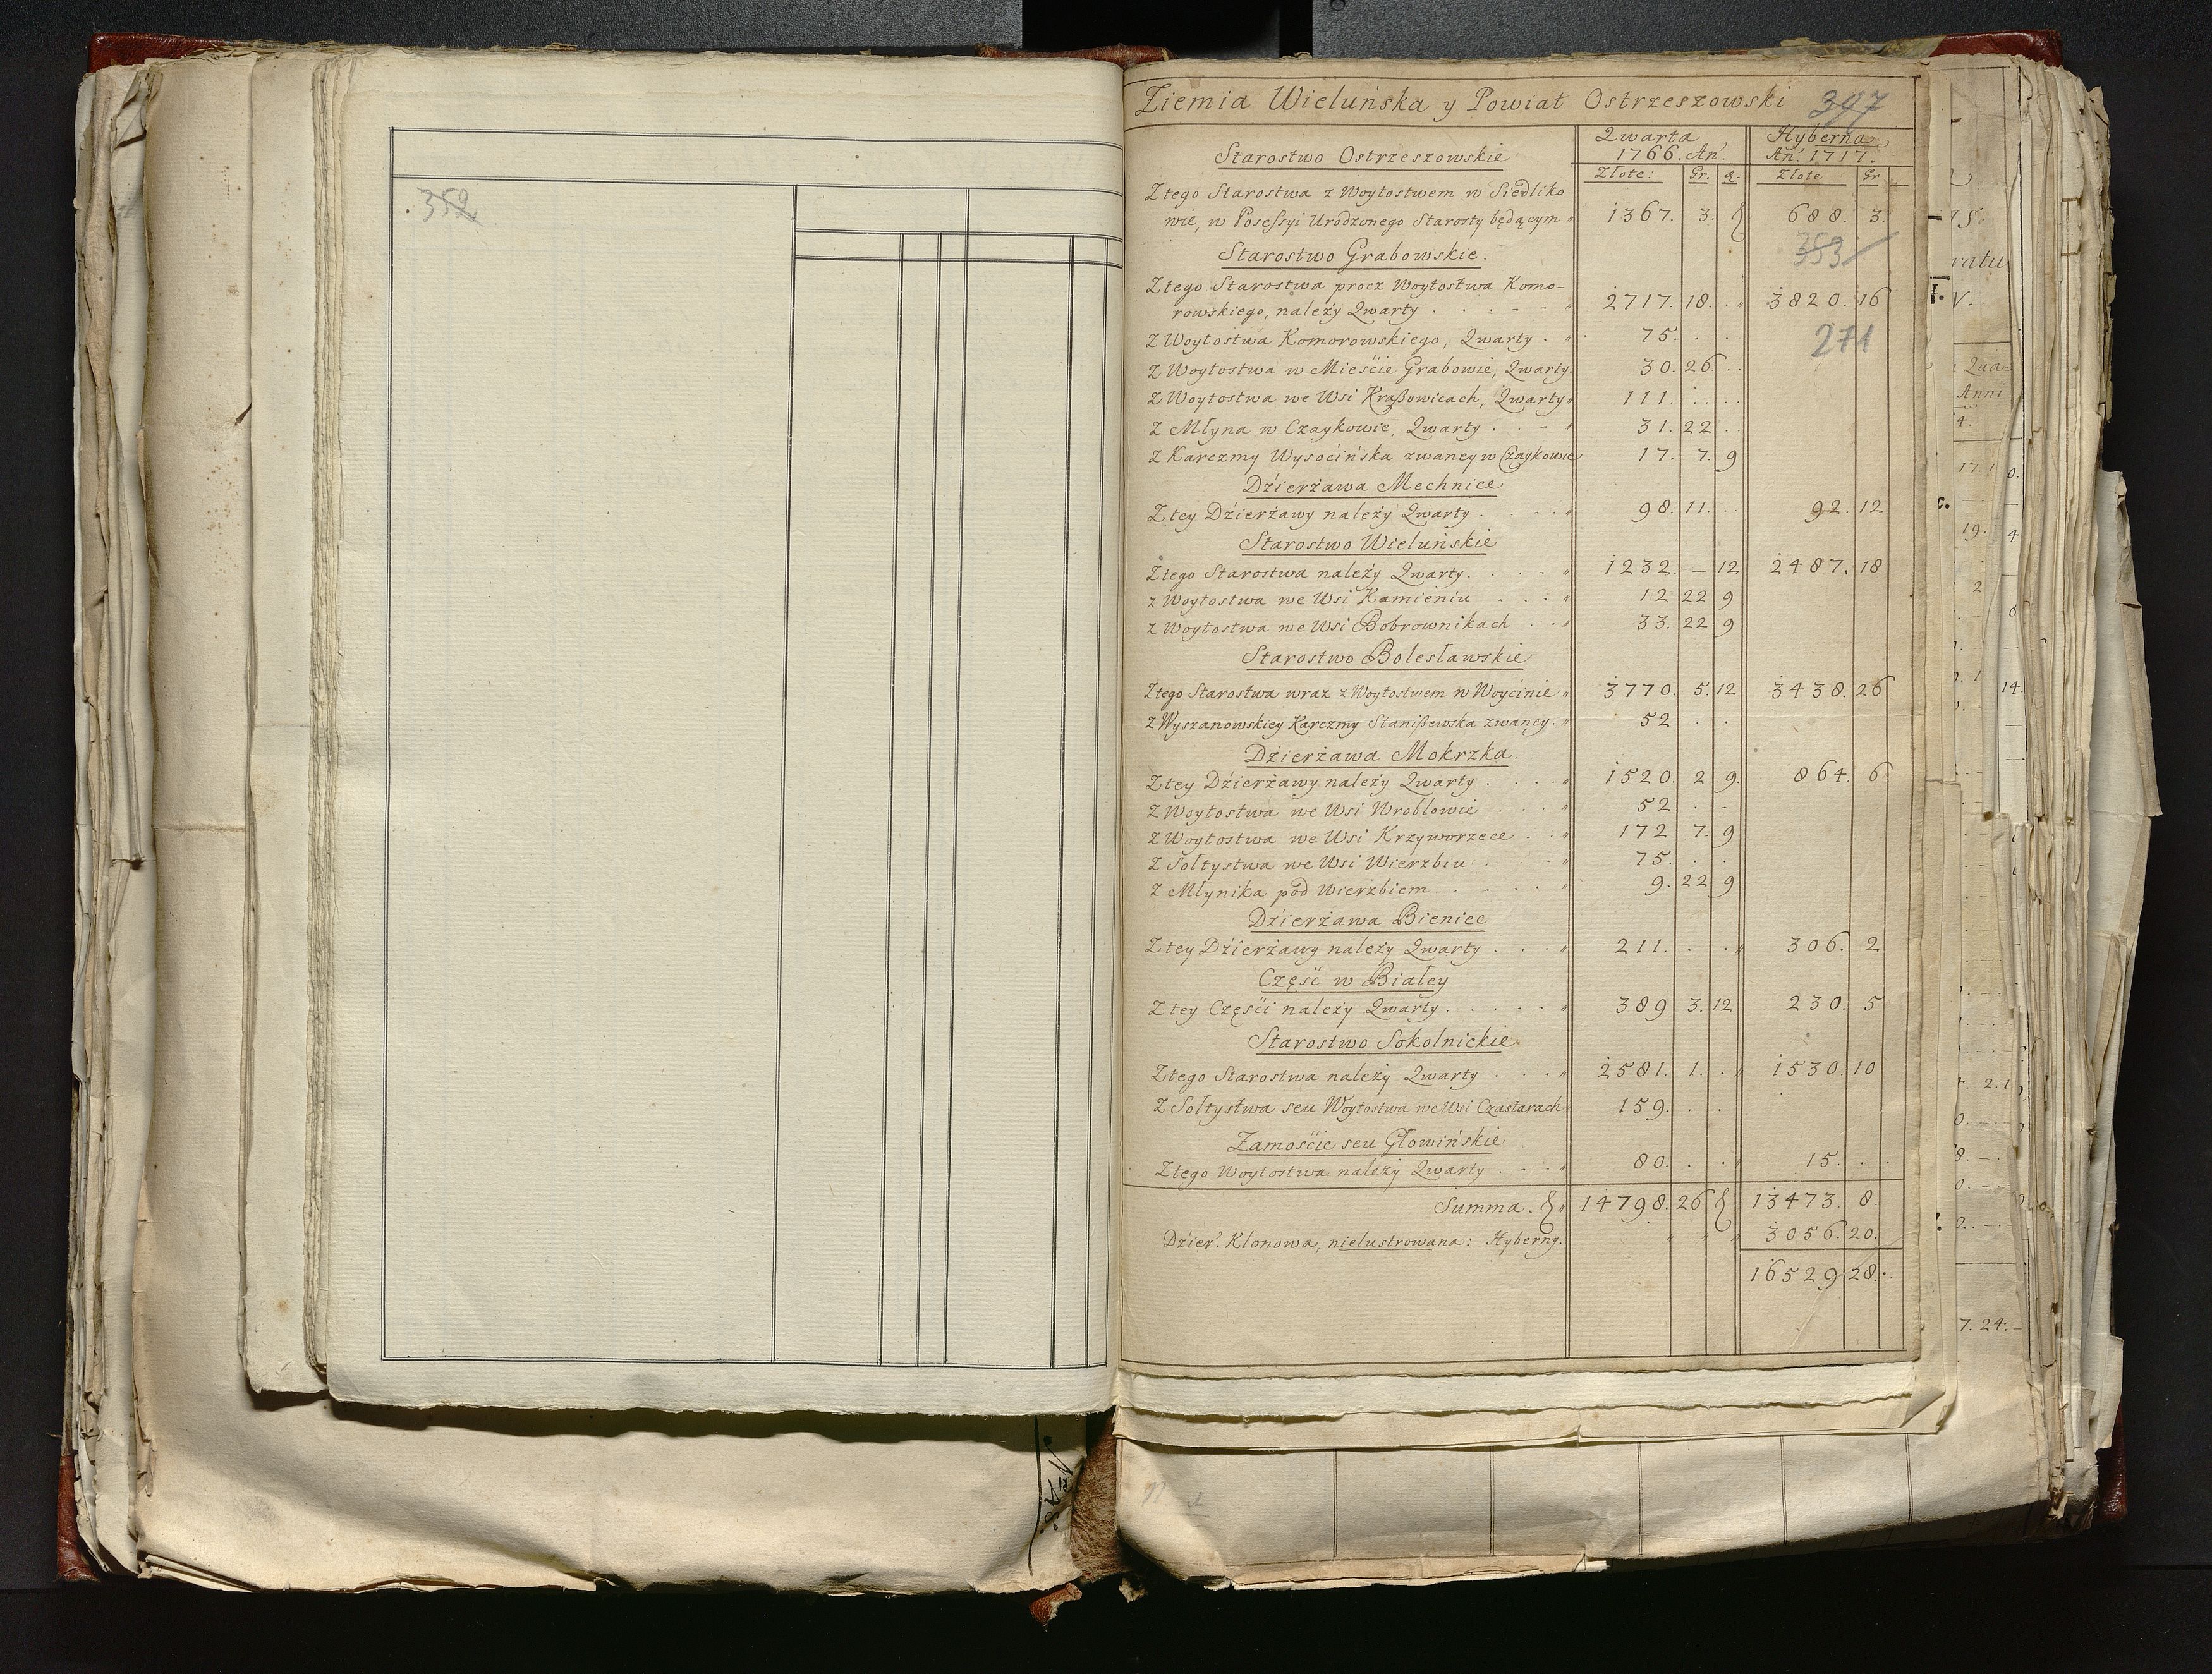 352
Ziemia Wieluńska y Powiat Ostrzeszowski 397
Starostwo Ostrzeszowskie
Qwarta 1766. An. Hyberna An. 1717.
Złote: Gr. q. Złote Gr
Z tego Starostwa z Woytostwem w Siedliko
wie, w Possessyi Urodzonego Starosty będącym 1367. 3. 688. 3.
Starostwo Grabowskie. 353
Z tego Starostwa procz Woytostwa Komo-
rowskiego, należy Qwarty 2717. 18. 3820. 16
Z Woytostwa Komorowskiego, Qwarty 75. 271
Z Woytostwa w Mieście Grabowie, Qwarty. 30. 26
Z Woytostwa we Wsi Kraßowicach, Qwarty 111.
Z Młyna w Czaykowie, Qwarty 31. 22
Z Karczmy Wysocińska zwaney w Czaykowie 17. 7. 9
Dzierżawa Mechnice
Z tey Dzierżawy należy Qwarty 98. 11. 92. 12
Starostwo Wieluńskie
Z tego Starostwa należy Qwarty. 1232. — 12 2487. 18
z Woytostwa we Wsi Kamieniu 12 22 9
z Woytostwa we Wsi Bobrownikach 33. 22 9
Starostwo Bolesławskie
Z tego Starostwa wraz z Woytostwem w Woycinie 3770. 5. 12 3438. 26
Z Wyszanowskiey Karczmy Stanißewska zwaney. 52
Dzierżawa Mokrzka.
Z tey Dzierżawy należy Qwarty 1520. 2 9. 864. 6
Z Woytostwa we Wsi Wroblowie 52
Z Woytostwa we Wsi Krzyworzece 172 7. 9
Z Sołtystwa we Wsi Wierzbiu 75.
Z Młynika pod Wierzbiem 9. 22 9
Dzierżawa Bieniec
Z tey Dzierżawy należy Qwarty 211. 306. 2
Część w Białey
Z tey Części należy Qwarty 389 3. 12 230. 5
Starostwo Sokolnickie
Z tego Starostwa należy Qwarty 2581. 1. 1530. 10
Z Sołtystwa seu Woytostwa we Wsi Czastarach 159.
Zamoście seu Głowińskie
Z tego Woytostwa należy Qwarty 80. 15.
Summa. 14798. 26 13473. 8.
Dzier. Klonowa, nielustrowana: Hyberny. 3056. 20.
16529 28.